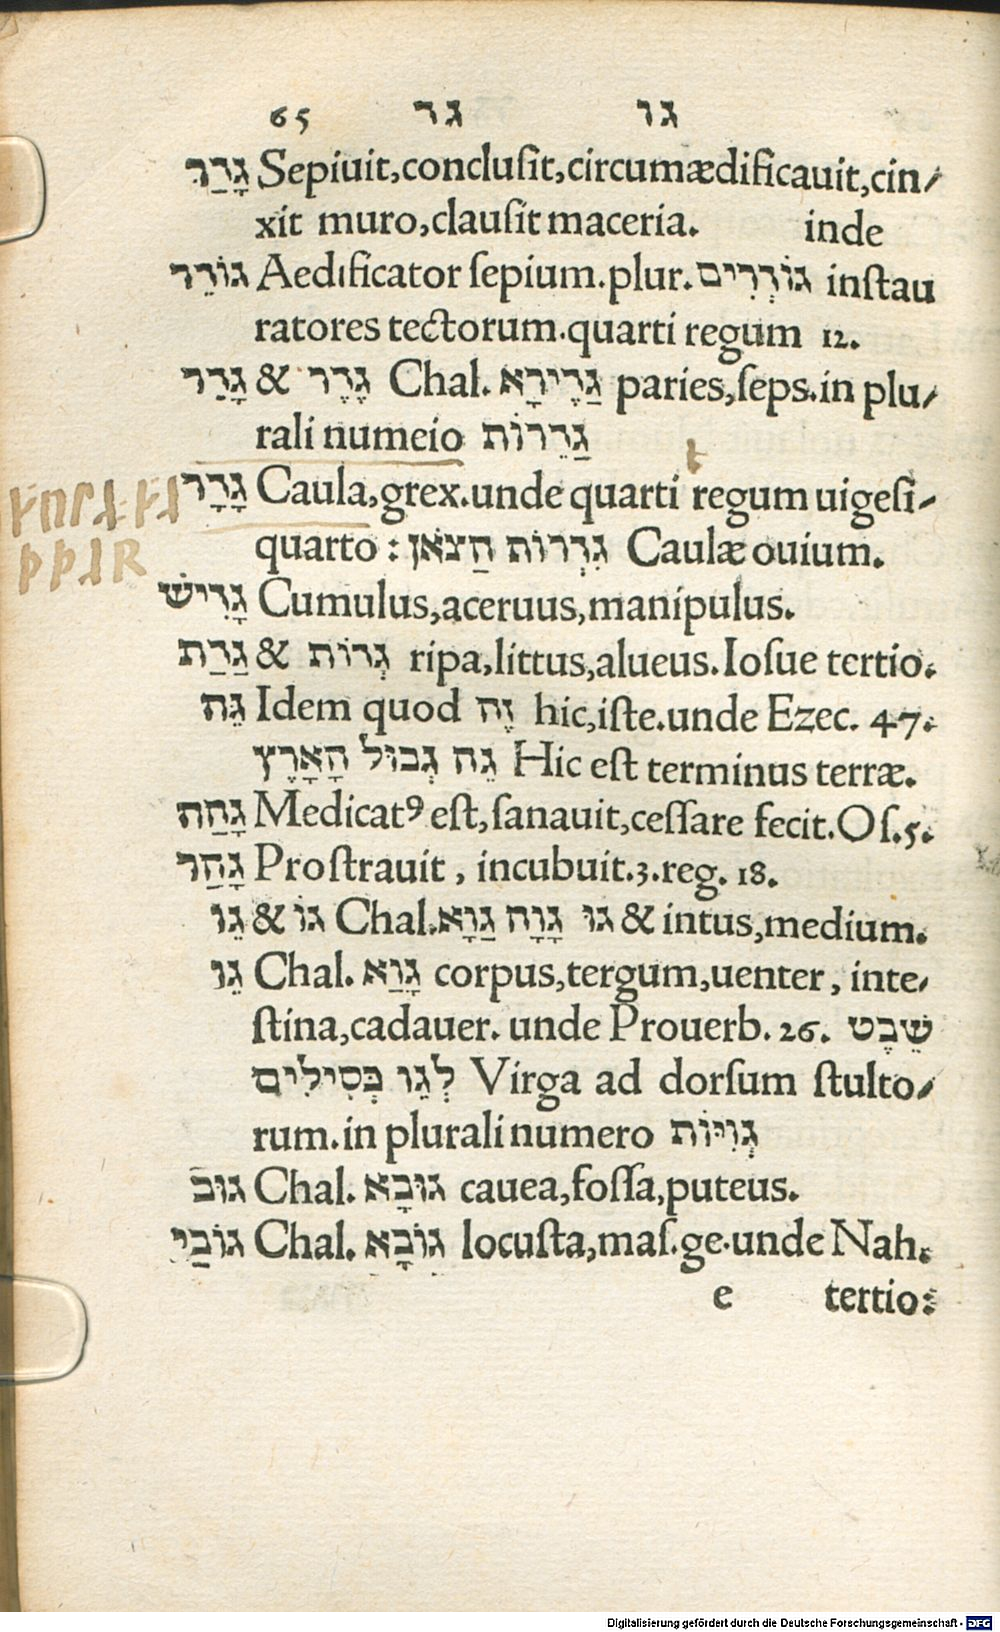 65 גר גו
גָדַר Sepiuit,conclusit,circumædificauit,cin/
xit muro,clausit maceria. inde
גוֹדֵר Aedificator sepium.plur. גוֹדְרִים instau
ratores tectorum.quarti regum 12.
גָדַר & גֶדֶר Chal. גַדֶירָא paries,seps.in plu/
rali numeio גַדֵרוֹת
גָדָר Caula,grex.unde quarti regum uigesi/
quarto : גִדְרוֹת הַצאֹן Caulæ ouium.
גָדִישׁ Cumulus,aceruus,manipulus.
גַדַת & גְדוֹת ripa,littus,alueus.Iosue tertio.
גֵה Idem quod זֶה hic,iste.unde Ezec. 47.
גֵה גְבוּל הָאָרֶץ Hic est terminus terræ.
גָהַה Medicatꝰ est,sanauit,cessare fecit.Os.5.
גָהַר Prostrauit, incubuit.3.reg. 18.
גֵו & גוֹ Chal. גַוָא גָוָה גוּ & intus,medium.
גֵו Chal. גָוַא corpus,tergum,uenter, inte/
stina,cadauer. unde Prouerb. 26. שֵׁבֶט
לְגֵו כְּסִילִים Virga ad dorsum stulto/
rum.in plurali numero גְוִיּוֹת
גוּב Chal. גוּבָא cauea,fossa,puteus.
גוֹבַי Chal. גוֹבָא locusta,mas.ge.unde Nah.
e tertio:
Digitalisierung gefördert durch die Deutsche Forschungsgemeinschaft - DFG